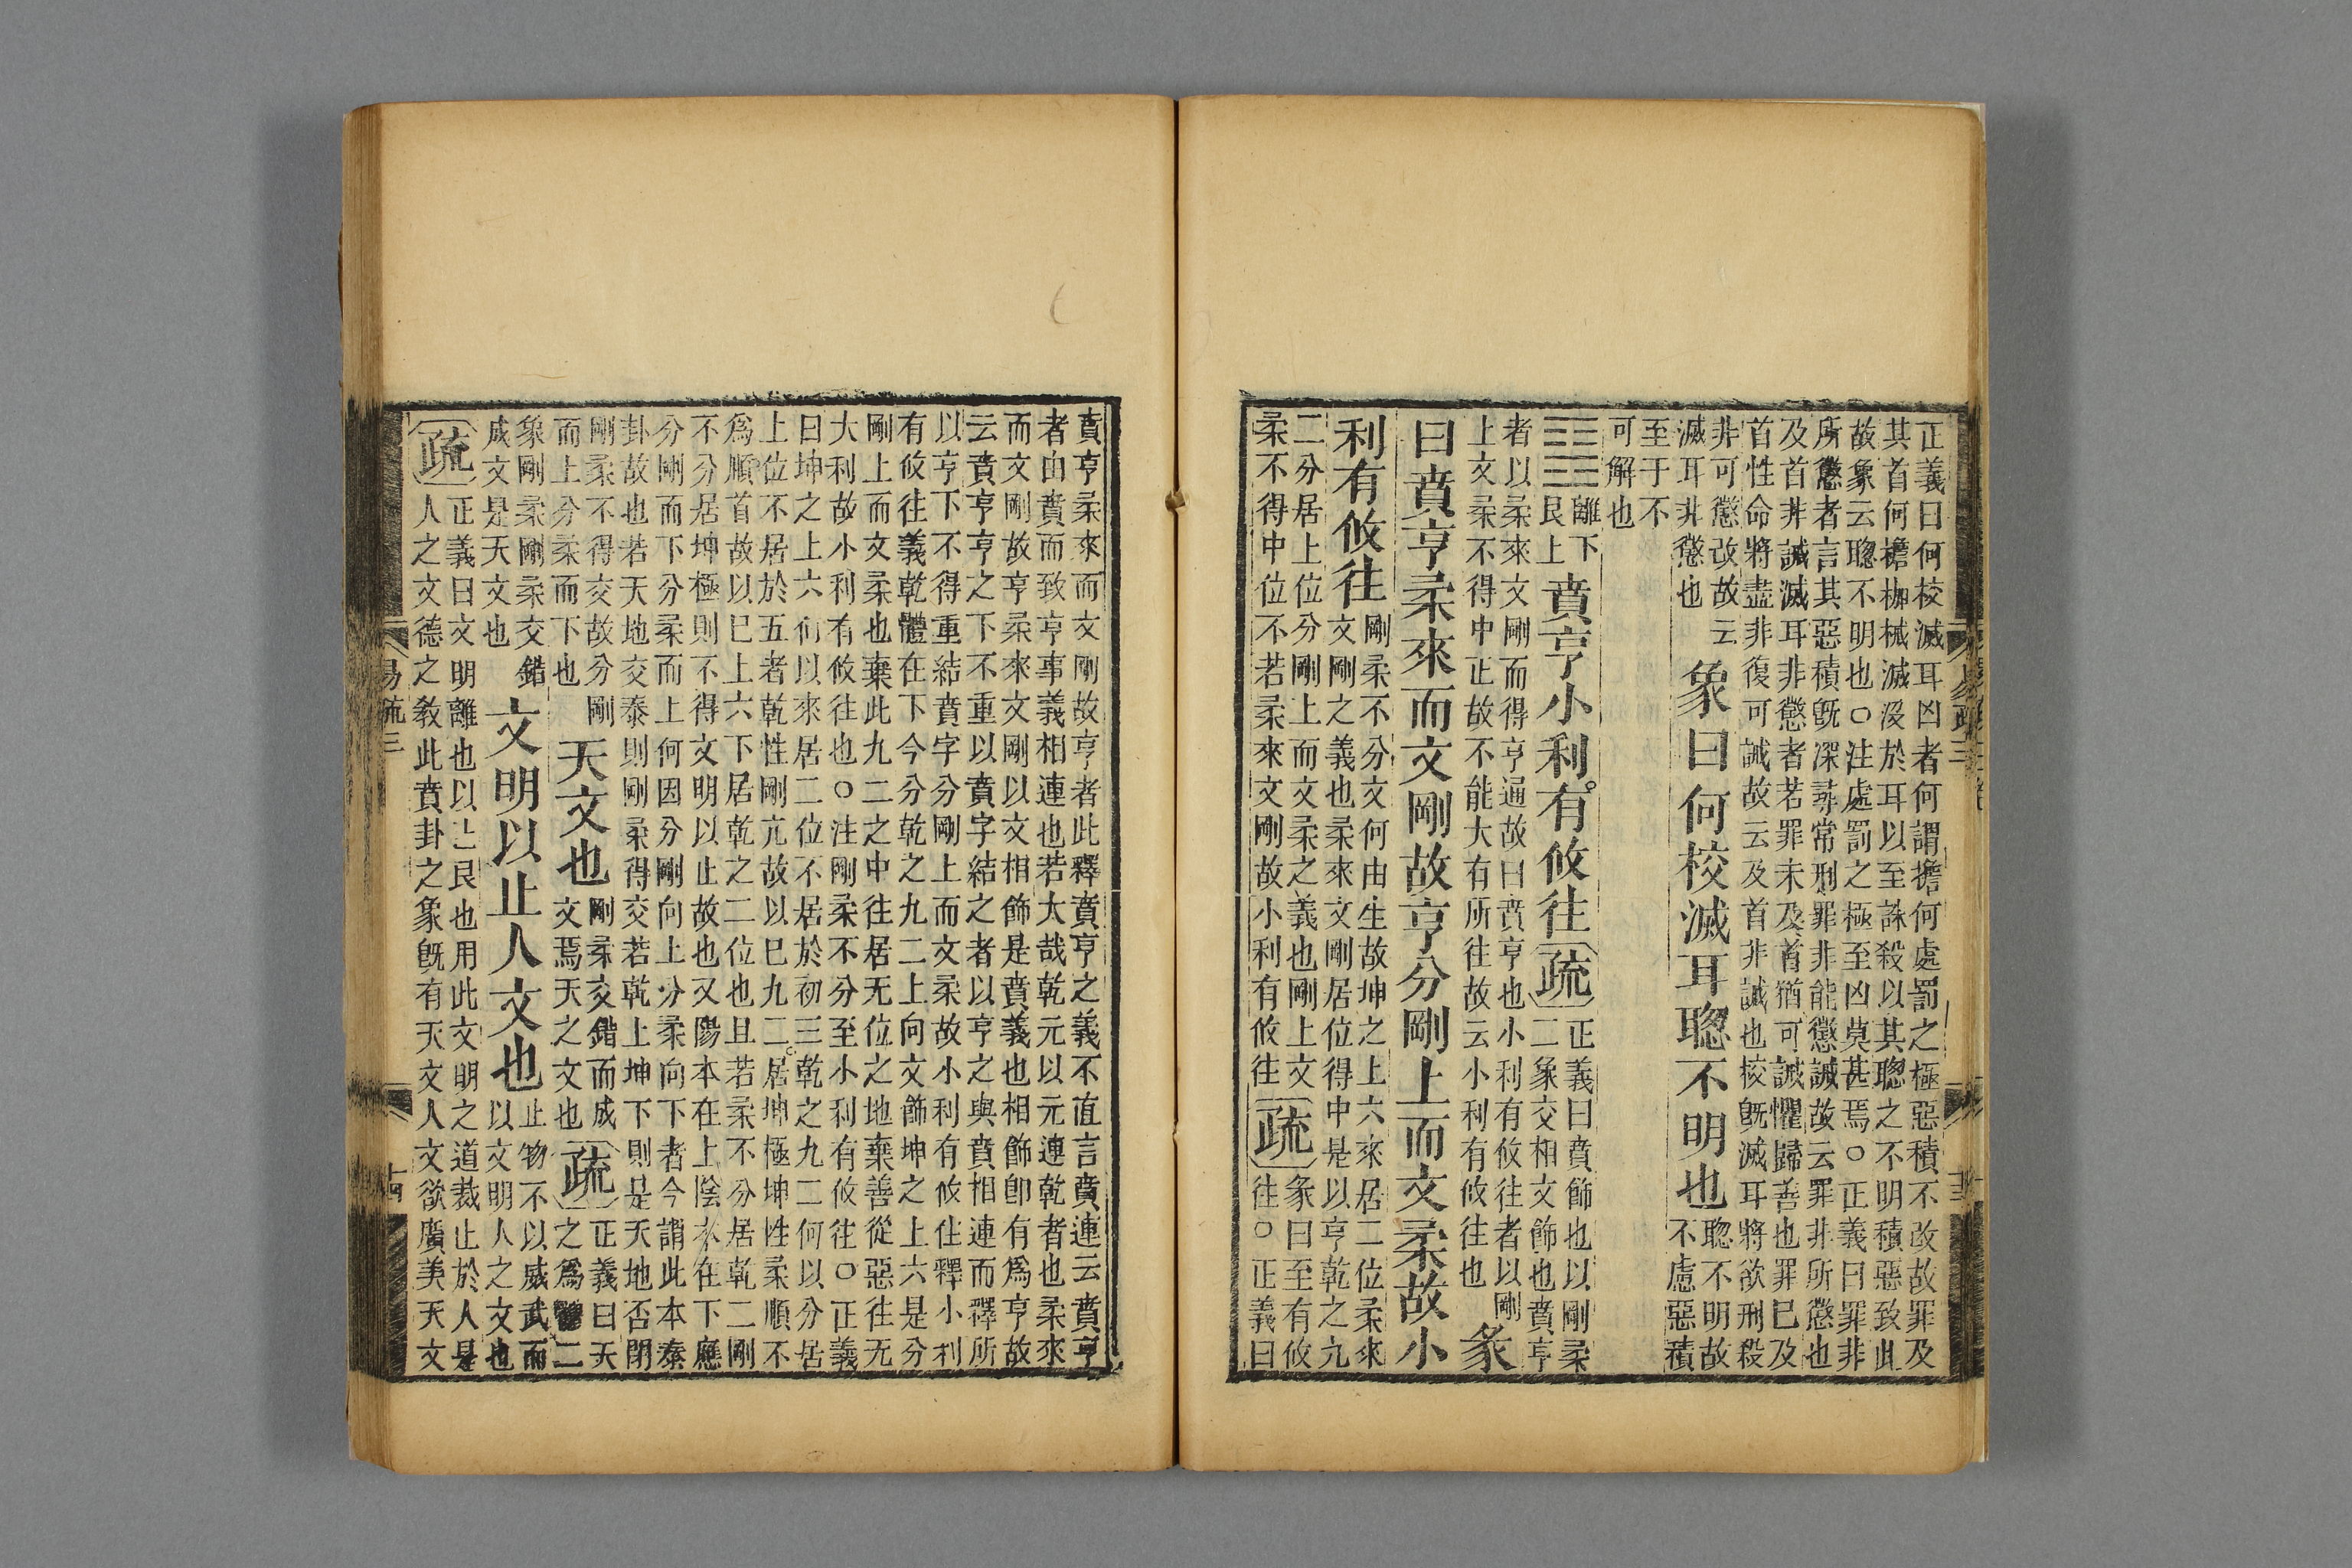 正義曰何校滅耳凶者何謂擔何處罰之極惡積不改故罪及
其首何擔枷械滅没於耳以至誅殺以其聰之不明積惡致此
故象云聰不明也○注處罰之極至凶莫甚焉○正義曰罪非
所懲者言其惡積旣深尋常刑罪非能懲誡故云罪非所懲也
及首非誡滅耳非懲者若罪未及首猶可誡懼歸善也罪已及
首性命將盡非復可誡故云及首非誡也校旣滅耳將欲刑殺
非可懲改故云
滅耳非懲也
象曰何校滅耳聰不明也
聰不明故
不慮惡積
至于不
可解也
離下
艮上
賁亨小利有攸往
疏
正義曰賁飾也以剛柔
二象交相文飾也賁亨
者以柔來文剛而得亨通故曰賁亨也小利有攸往者以剛
上文柔不得中正故不能大有所往故云小利有攸往也
彖
曰賁亨柔來而文剛故亨分剛上而文柔故小
利有攸往
剛柔不分文何由生故坤之上六來居二位柔來
文剛之義也柔來文剛居位得中是以亨乾之九
二分居上位分剛上而文柔之義也剛上文
柔不得中位不若柔來文剛故小利有攸往
疏
彖曰至有攸
往○正義曰
賁亨柔來而文剛故亨者此釋賁亨之義不直言賁連云賁亨
者由賁而致亨事義相連也若大哉乾元以元連乾者也柔來
而文剛故亨柔來文剛以文相飾是賁義也相飾卽有爲亨故
云賁亨亨之下不重以賁字結之者以亨之與賁相連而釋所
以亨下不得重結賁字分剛上而文柔故小利有攸往釋小利
有攸往義乾體在下今分乾之九二上向文飾坤之上六是分
剛上而文柔也棄此九二之中往居无位之地棄善從惡往无
大利故小利有攸往也○注剛柔不分至小利有攸往○正義
曰坤之上六何以來居二位不居於初三乾之九二何以分居
上位不居於五者乾性剛亢故以巳九二居坤極坤性柔順不
爲順首故以巳上六下居乾之二位也且若柔不分居乾二剛
不分居坤極則不得文明以止故也又陽本在上陰本在下應
分剛而下分柔而上何因分剛向上分柔向下者今謂此本泰
卦故也若天地交泰則剛柔得交若乾上坤下則是天地否閉
剛柔不得交故分剛
而上分柔而下也
天文也
剛柔交錯而成
文焉天之文也
疏
正義曰天
之爲體二
象剛柔剛柔交錯
成文是天文也
文明以止人文也
止物不以威武而
以文明人之文也
疏
正義曰文明離也以止艮也用此文明之道裁止於人是
人之文德之教此賁卦之象旣有天文人文欲廣美天文
易疏三